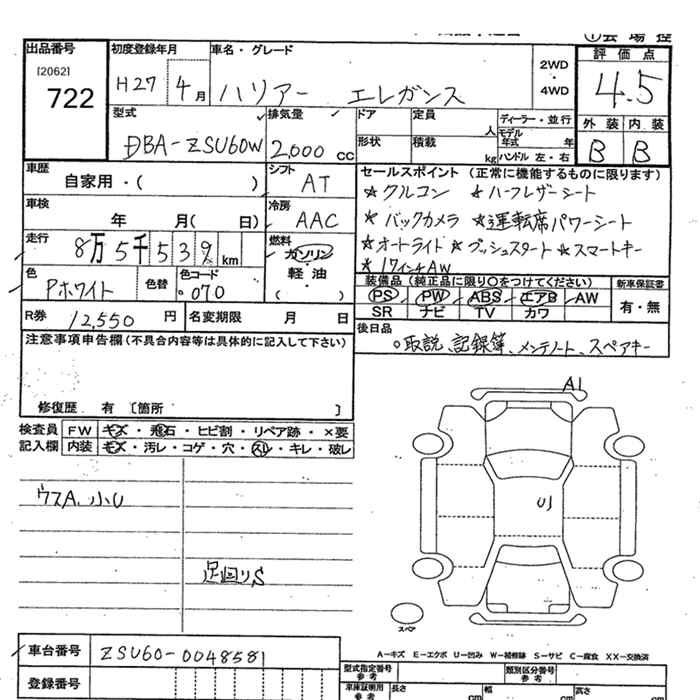 出品番号
[2062]
722
初度登録年月
H27 4月
車名・グレード
ハリアー エレガンス
2WD
・
4WD
評価点
4.5
外装 内装
B B
型式
DBA-ZSU60W
排気量
2,000 cc
ドア 定員 人
形状 積載 kg
ディーラー・並行
モデル年式 年
ハンドル 左・右
車歴
自家用・( )
シフト
AT
車検
年 月( 日)
冷房
AAC
走行
8万5千539km
燃料
ガソリン
軽・油
( )
色
Pホワイト
色替
色コード
070
R券 12,550円
名変期限 月 日
セールスポイント (正常に機能するものに限ります)
☆クルコン ☆ハーフレザーシート
☆バックカメラ ☆運転席パワーシート
☆オートライト ☆プッシュスタート ☆スマートキー
☆17インチAW
装備品 (純正品に限り○をつけてください)
新車保証書
PS PW ABS エアB AW
有・無
SR ナビ TV カワ
後日品
○取説、記録簿、メンテノート、スペアキー
注意事項申告欄(不具合内容等は具体的に記入して下さい)
修復歴 有 [箇所 ]
検査員
記入欄
FW キズ・飛石・ヒビ割・リペア跡・×要
内装 キズ・汚レ・コゲ・穴・スレ・キレ・破レ
ウスA、小U
足回りS
A1
U1
スペア
A-キズ E-エクボ U-凹み W-補修跡 S-サビ C-腐食 XX-交換済
車台番号 ZSU60-0048581
登録番号
型式指定番号
参考
類別区分番号
参考
車庫証明用
参考
長さ cm
幅 cm
高さ cm